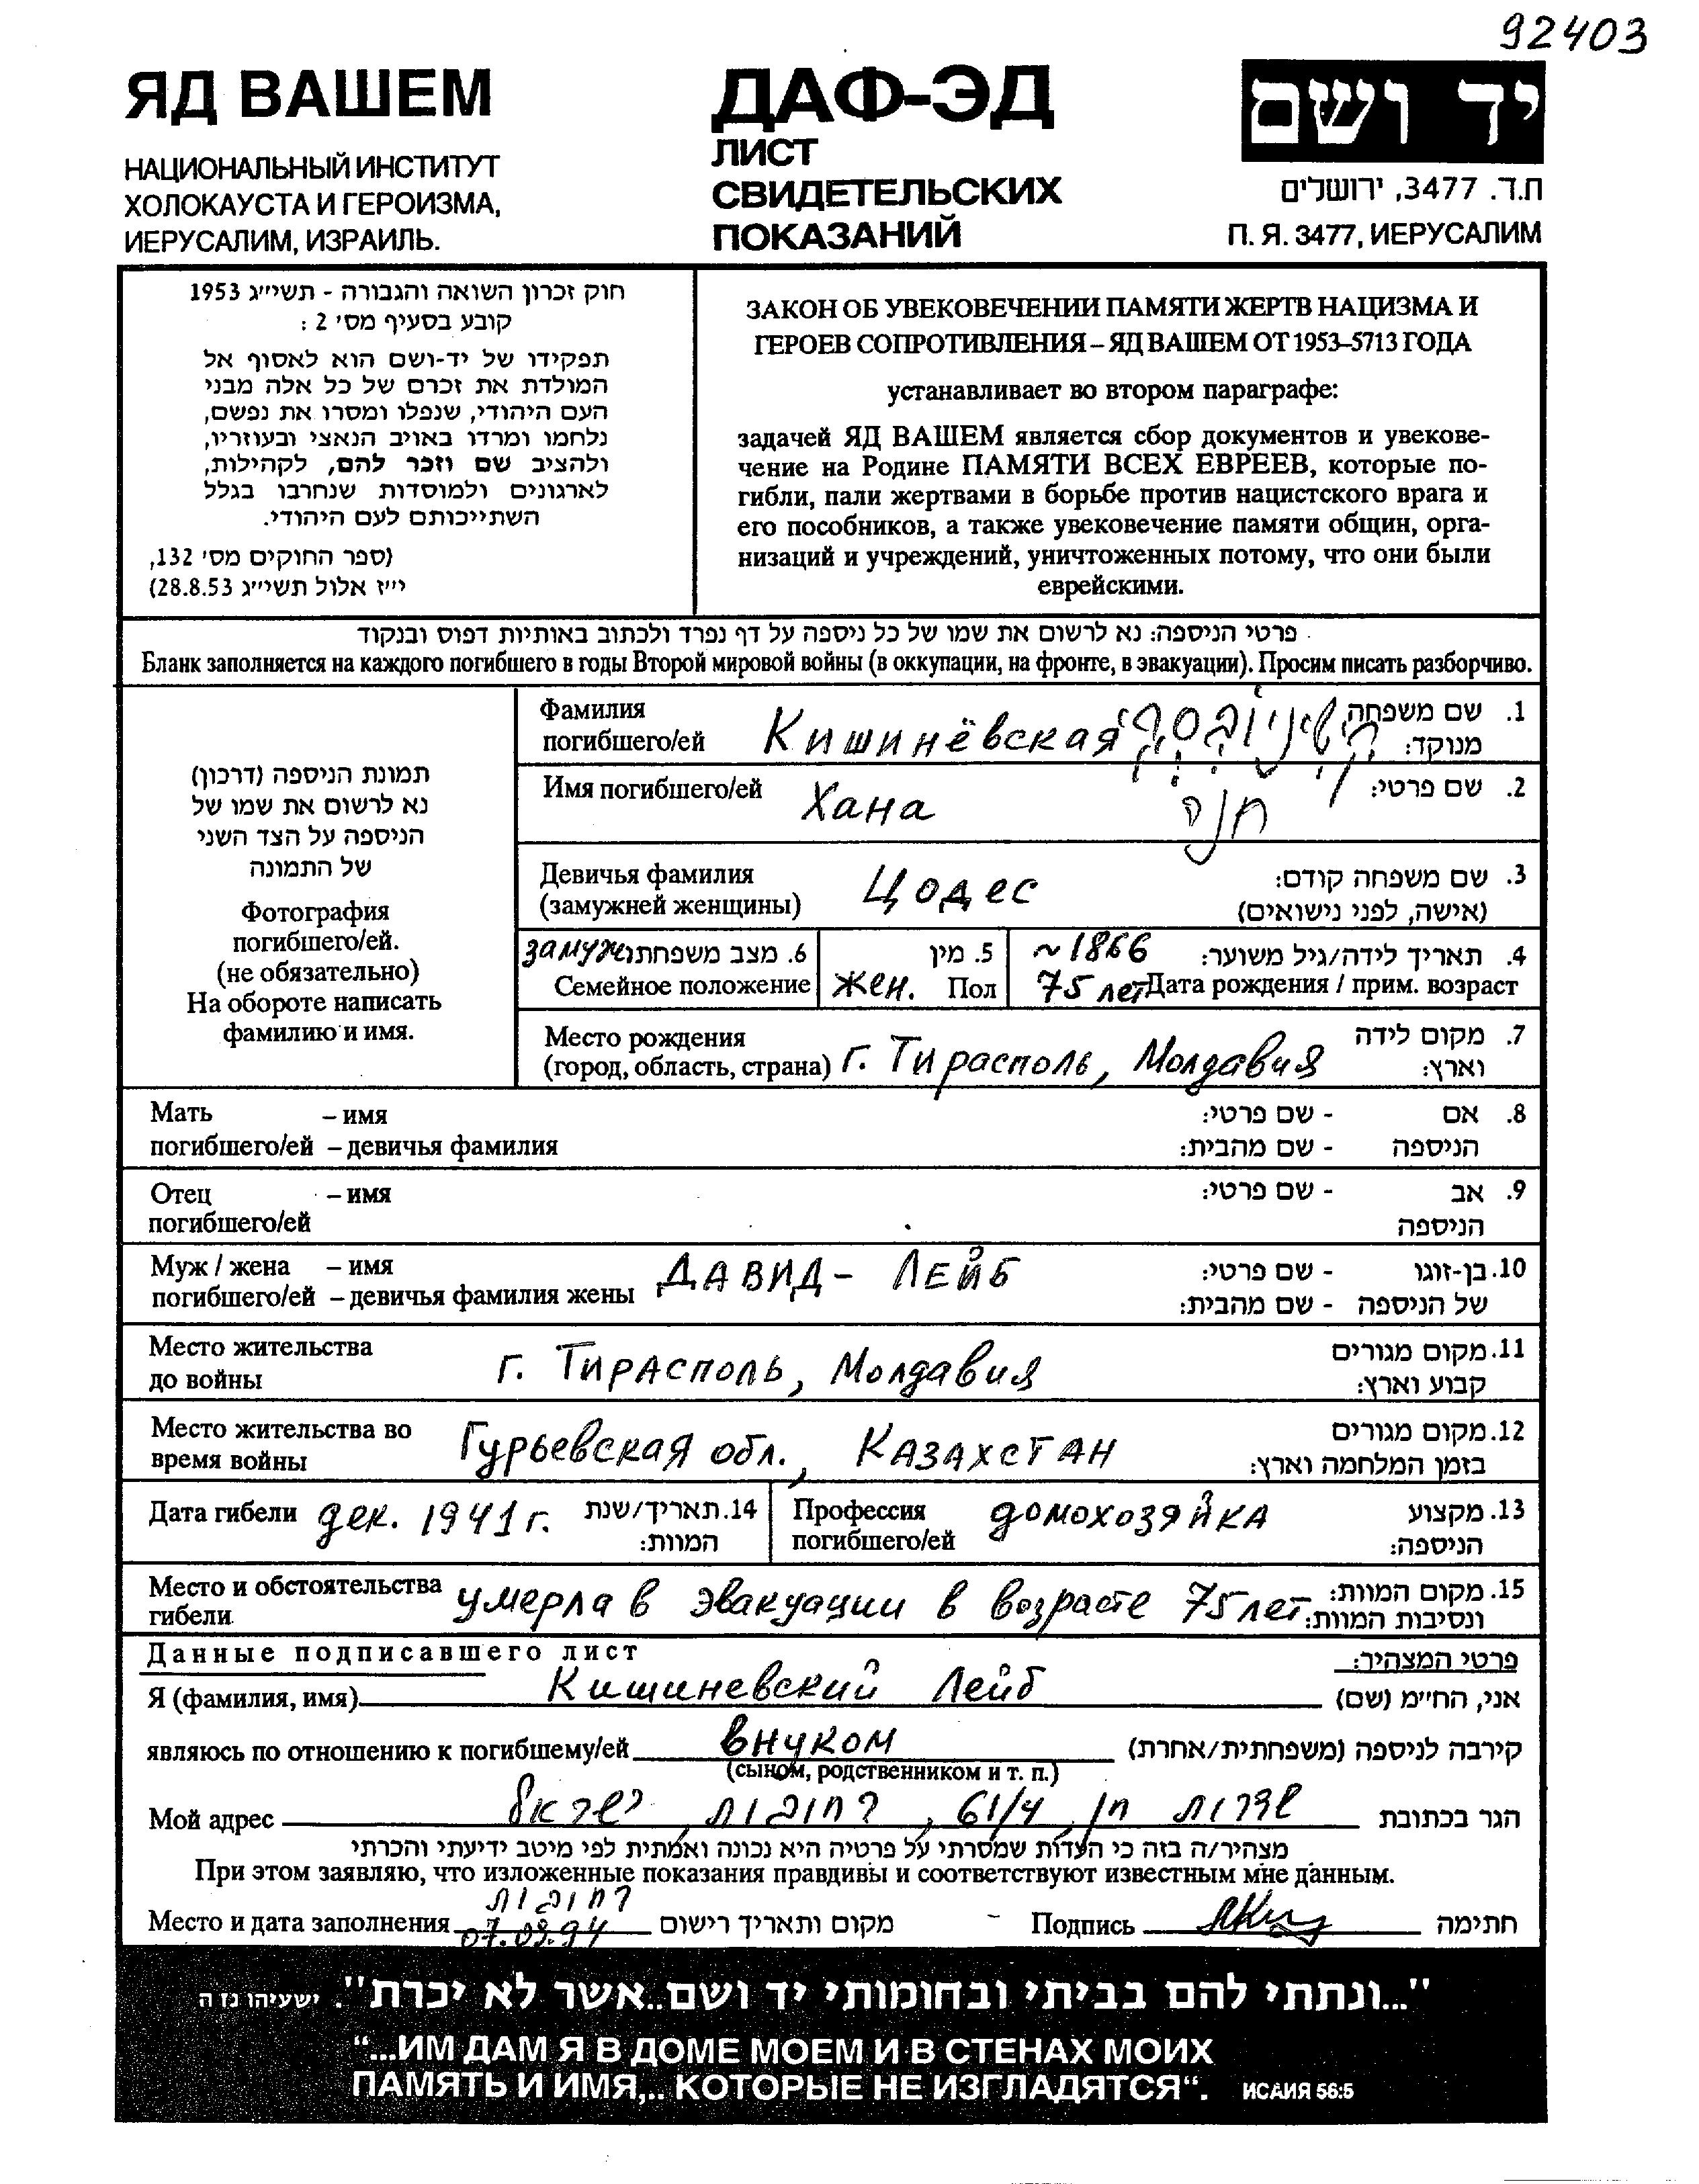 92403
ЯД ВАШЕМ
НАЦИОНАЛЬНЫЙ ИНСТИТУТ
ХОЛОКАУСТА И ГЕРОИЗМА,
ИЕРУСАЛИМ, ИЗРАИЛЬ.
ДАФ-ЭД
ЛИСТ
СВИДЕТЕЛЬСКИХ
ПОКАЗАНИЙ
יד ושם
ת.ד. 3477, ירושלים
П. Я. 3477, ИЕРУСАЛИМ
חוק זכרון השואה והגבורה - תשי״ג 1953
קובע בסעיף מס׳ 2 :
תפקידו של יד-ושם הוא לאסוף אל
המולדת את זכרם של כל אלה מבני
העם היהודי, שנפלו ומסרו את נפשם,
נלחמו ומרדו באויב הנאצי ובעוזריו,
ולהציב שם וזכר להם, לקהילות,
לארגונים ולמוסדות שנחרבו בגלל
השתייכותם לעם היהודי.
(ספר החוקים מס׳ 132,
י״ז אלול תשי״ג 28.8.53)
ЗАКОН ОБ УВЕКОВЕЧЕНИИ ПАМЯТИ ЖЕРТВ НАЦИЗМА И
ГЕРОЕВ СОПРОТИВЛЕНИЯ – ЯД ВАШЕМ ОТ 1953–5713 ГОДА
устанавливает во втором параграфе:
задачей ЯД ВАШЕМ является сбор документов и увекове-
чение на Родине ПАМЯТИ ВСЕХ ЕВРЕЕВ, которые по-
гибли, пали жертвами в борьбе против нацистского врага и
его пособников, а также увековечение памяти общин, орга-
низаций и учреждений, уничтоженных потому, что они были
еврейскими.
פרטי הניספה: נא לרשום את שמו של כל ניספה על דף נפרד ולכתוב באותיות דפוס ובנקוד
Бланк заполняется на каждого погибшего в годы Второй мировой войны (в оккупации, на фронте, в эвакуации). Просим писать разборчиво.
תמונת הניספה (דרכון)
נא לרשום את שמו של
הניספה על הצד השני
של התמונה
Фотография
погибшего/ей.
(не обязательно)
На обороте написать
фамилию и имя.
Фамилия
погибшего/ей Кишинёвская
1. שם משפחה
מנוקד:
Имя погибшего/ей Хана חנה 2. שם פרטי:
Девичья фамилия
(замужней женщины) Цодес
3. שם משפחה קודם:
(אישה, לפני נישואים)
замуж. 6. מצב משפחתי
Семейное положение
5. מין
жен. Пол
~ 1866 4. תאריך לידה/גיל משוער:
75 лет Дата рождения / прим. возраст
Место рождения
(город, область, страна) г. Тирасполь, Молдавия
7. מקום לידה
וארץ:
Мать – имя
погибшего/ей – девичья фамилия
8. אם - שם פרטי:
הניספה - שם מהבית:
Отец – имя
погибшего/ей
9. אב - שם פרטי:
הניספה
Муж / жена – имя
погибшего/ей – девичья фамилия жены ДАВИД - ЛЕЙБ
10. בן-זוגו - שם פרטי:
של הניספה - שם מהבית:
Место жительства
до войны г. Тирасполь, Молдавия
11. מקום מגורים
קבוע וארץ:
Место жительства во
время войны Гурьевская обл., КАЗАХСТАН
12. מקום מגורים
בזמן המלחמה וארץ:
Дата гибели дек. 1941 г. 14. תאריך/שנת
המוות:
Профессия
погибшего/ей домохозяйка
13. מקצוע
הניספה:
Место и обстоятельства
гибели умерла в эвакуации в возрасте 75 лет
15. מקום המוות:
ונסיבות המוות:
Данные подписавшего лист פרטי המצהיר:
Я (фамилия, имя) Кишиневский Лейб אני, הח״מ (שם)
являюсь по отношению к погибшему/ей внуком קירבה לניספה (משפחתית/אחרת)
(сыном, родственником и т. п.)
Мой адрес שדרות חן 61/4, רחובות, ישראל הגר בכתובת
מצהיר/ה בזה כי העדות שמסרתי על פרטיה היא נכונה ואמתית לפי מיטב ידיעתי והכרתי
При этом заявляю, что изложенные показания правдивы и соответствуют известным мне данным.
רחובות
Место и дата заполнения 07.09.94 מקום ותאריך רישום Подпись חתימה
"...ונתתי להם בביתי ובחומותי יד ושם..אשר לא יכרת". ישעיהו נז ה
“...ИМ ДАМ Я В ДОМЕ МОЕМ И В СТЕНАХ МОИХ
ПАМЯТЬ И ИМЯ,.. КОТОРЫЕ НЕ ИЗГЛАДЯТСЯ“. ИСАИЯ 56:5